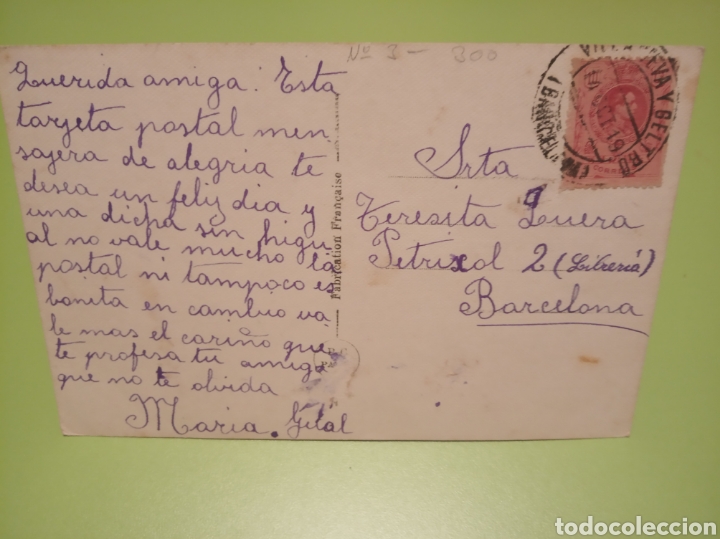 Nº 3 - 300
Querida amiga: Esta
tarjeta postal men
sajera de alegria te
desea un feliz dia y
una dicha sin higu
al no vale mucho la
postal ni tampoco es
bonita en cambio va
le mas el cariño que
te profesa tu amiga
que no te olvida
Maria. Gilal
Fabrication Française
Srta
Teresita Quera
Petrixol 2 (Libreria)
Barcelona
VILLANUEVA Y GELTRU
todocoleccion